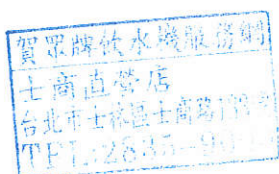 賀眾牌飲水機服務網
士商直營店
台北市士林區士商路
TEL:2835-